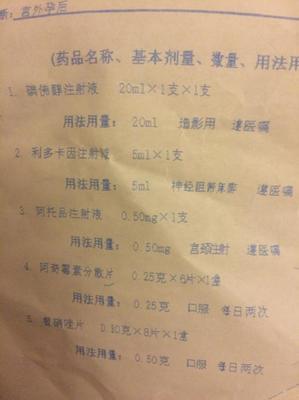 断：宫外孕后
(药品名称、基本剂量、数量、用法用
1. 碘佛醇注射液 20ml×1支×1支
用法用量：20ml 造影用 遵医嘱
2. 利多卡因注射液 5ml×1支
用法用量：5ml 神经阻滞 遵医嘱
3. 阿托品注射液 0.50mg×1支
用法用量：0.50mg 宫颈注射 遵医嘱
4. 阿奇霉素分散片 0.25克×6片×1盒
用法用量：0.25克 口服 每日两次
5. 替硝唑片 0.10克×8片×1盒
用法用量：0.50克 口服 每日两次